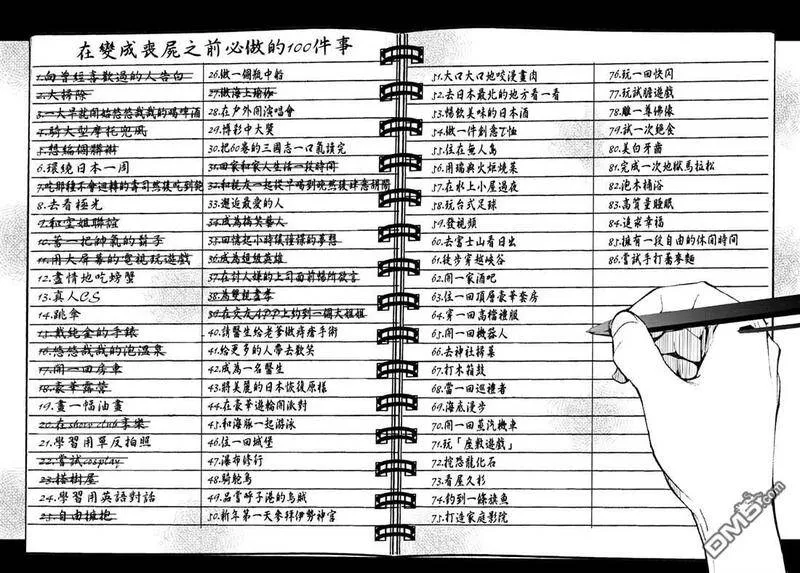 在變成喪屍之前必做的100件事
1.向曾經喜歡過的人告白
2.大掃除
3.一大早就開始悠悠哉哉的喝啤酒
4.騎大型摩托兜風
5.想給個聯辦
6.環繞日本一周
7.吃那種不會迴轉的壽司然後吃到飽
8.去看極光
9.和空姐聯誼
10.蓄一把帥氣的鬍子
11.用大屏幕的電視玩遊戲
12.盡情地吃螃蟹
13.真人CS
14.跳傘
15.戴純金的手錶
16.悠悠哉哉的泡溫泉
17.開一回房車
18.豪華露營
19.畫一幅油畫
20.在show club享樂
21.學習用單反拍照
22.嘗試cosplay
23.搭樹屋
24.學習用英語對話
25.自由擁抱
26.做一個瓶中船
27.做海上瑜伽
28.在戶外開演唱會
29.博彩中大獎
30.把60卷的三國志一口氣讀完
31.回家和家人生活一段時間
32.和親友一起從早喝到晚然後肆意胡鬧
33.邂逅最愛的人
34.成為搞笑藝人
35.回憶起小時候憧憬的夢想
36.成為超級英雄
37.在討人嫌的上司面前暢所欲言
38.為雙親盡孝
39.在交友APP上約到一個大姐姐
40.請醫生給老爹做痔瘡手術
41.給更多的人帶去歡笑
42.成為一名醫生
43.將美麗的日本恢復原樣
44.在豪華遊輪開派對
45.和海豚一起游泳
46.住一回城堡
47.瀑布修行
48.騎鴕鳥
49.品嘗呼子港的烏賊
50.新年第一天參拜伊勢神宮
51.大口大口地咬漫畫肉
52.去日本最北的地方看一看
53.暢飲美味的日本酒
54.做一件創意T恤
55.住在無人島
56.用瑞典火炬燒菜
57.在水上小屋過夜
58.玩台式足球
59.發視頻
60.去富士山看日出
61.徒步穿越峽谷
62.開一家酒吧
63.住一回頂層豪華套房
64.穿一回高檔禮服
65.開一回機器人
66.去神社掃墓
67.打木箱鼓
68.當一回巡禮者
69.海底漫步
70.開一回蒸汽機車
71.玩「座敷遊戲」
72.挖恐龍化石
73.看屋久杉
74.釣到一條旗魚
75.打造家庭影院
76.玩一回快閃
77.玩試膽遊戲
78.雕一尊佛像
79.試一次純金
80.美白牙齒
81.完成一次地獄馬拉松
82.泡木桶浴
83.高質量睡眠
84.追求幸福
85.擁有一段自由的休閒時間
86.嘗試手打蕎麥麵
DM5.com